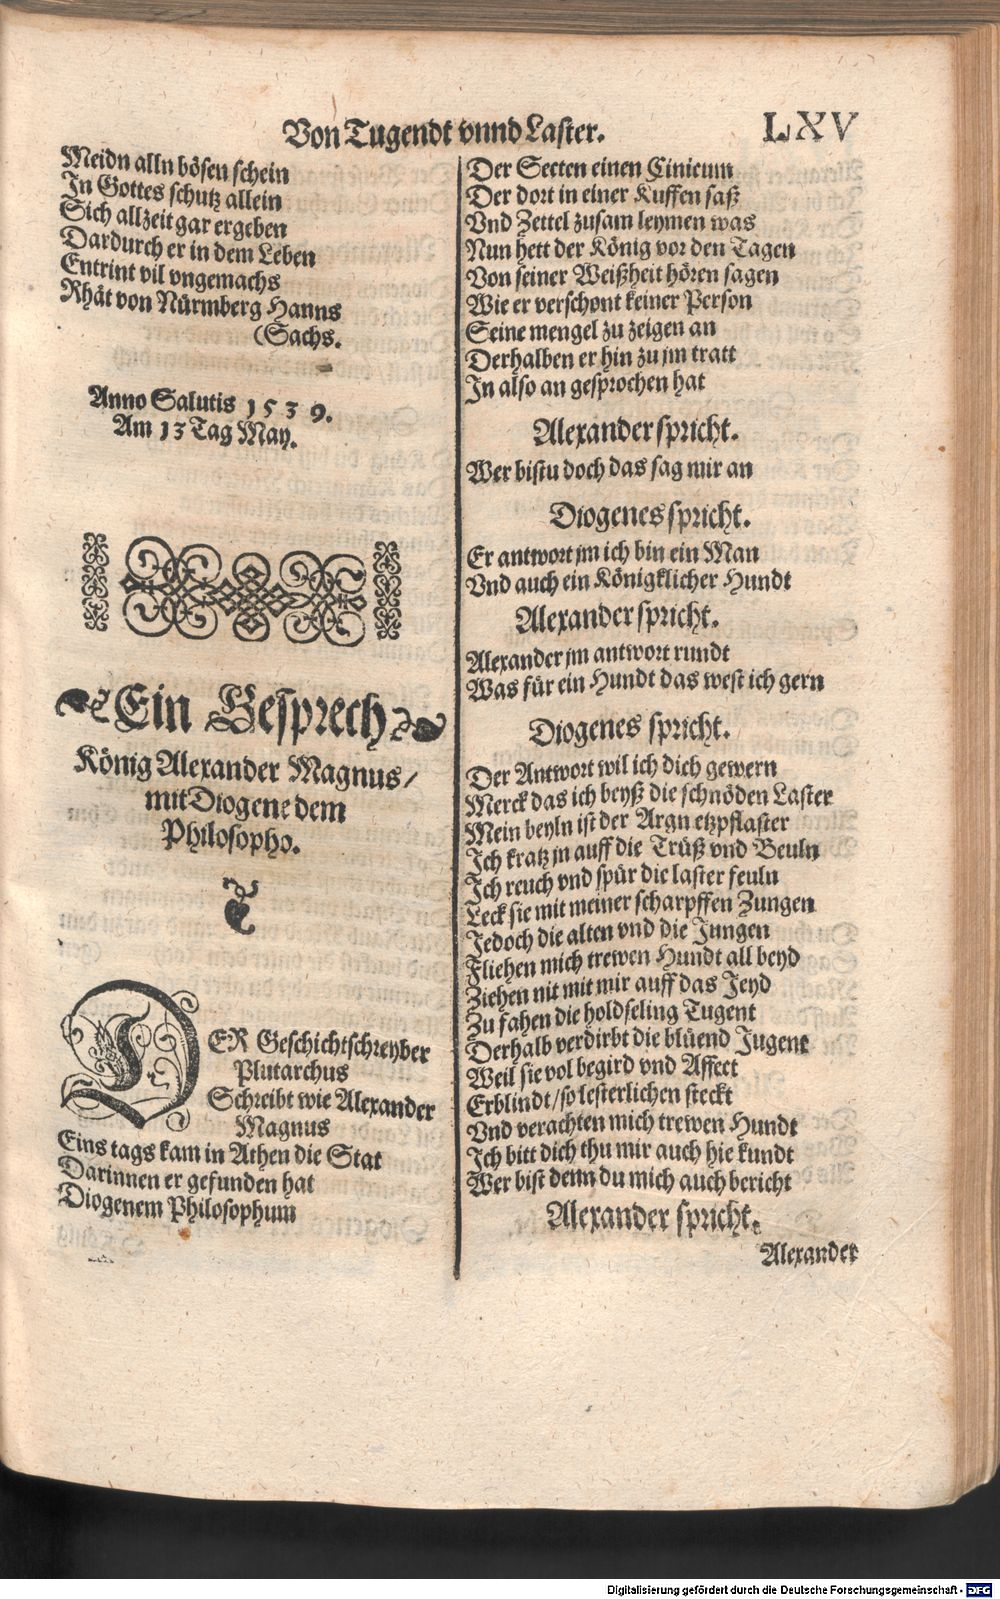 Von Tugendt vnnd Laster.
LXV
Meidn alln bösen schein
In Gottes schutz allein
Sich allzeit gar ergeben
Dardurch er in dem Leben
Entrint vil vngemachs
Rhät von Nürmberg Hanns
(Sachs.
Anno Salutis 1539.
Am 13 Tag May.
Ein Gesprech
König Alexander Magnus/
mit Diogene dem
Philosopho.
DER Geschichtschreyber
Plutarchus
Schreibt wie Alexander
Magnus
Eins tags kam in Athen die Stat
Darinnen er gefunden hat
Diogenem Philosophum
Der Secten einen Cinicum
Der dort in einer Kuffen saß
Vnd Zettel zusam leymen was
Nun hett der König vor den Tagen
Von seiner Weißheit hören sagen
Wie er verschont keiner Person
Seine mengel zu zeigen an
Derhalben er hin zu jm tratt
In also an gesprochen hat
Alexander spricht.
Wer bistu doch das sag mir an
Diogenes spricht.
Er antwort jm ich bin ein Man
Vnd auch ein Königklicher Hundt
Alexander spricht.
Alexander jm antwort rundt
Was für ein Hundt das west ich gern
Diogenes spricht.
Der Antwort wil ich dich gewern
Merck das ich beyß die schnöden Laster
Mein beyln ist der Argn etzpflaster
Ich kratz jn auff die Trüß vnd Beuln
Ich reuch vnd spür die laster feuln
Leck sie mit meiner scharpffen Zungen
Jedoch die alten vnd die Jungen
Fliehen mich trewen Hundt all beyd
Ziehen nit mit mir auff das Jeyd
Zu fahen die holdseling Tugent
Derhalb verdirbt die blüend Jugent
Weil sie vol begird vnd Affect
Erblindt/so lesterlichen steckt
Vnd verachten mich trewen Hundt
Ich bitt dich thu mir auch hie kundt
Wer bist denn du mich auch bericht
Alexander spricht.
Alexander
Digitalisierung gefördert durch die Deutsche Forschungsgemeinschaft - DFG